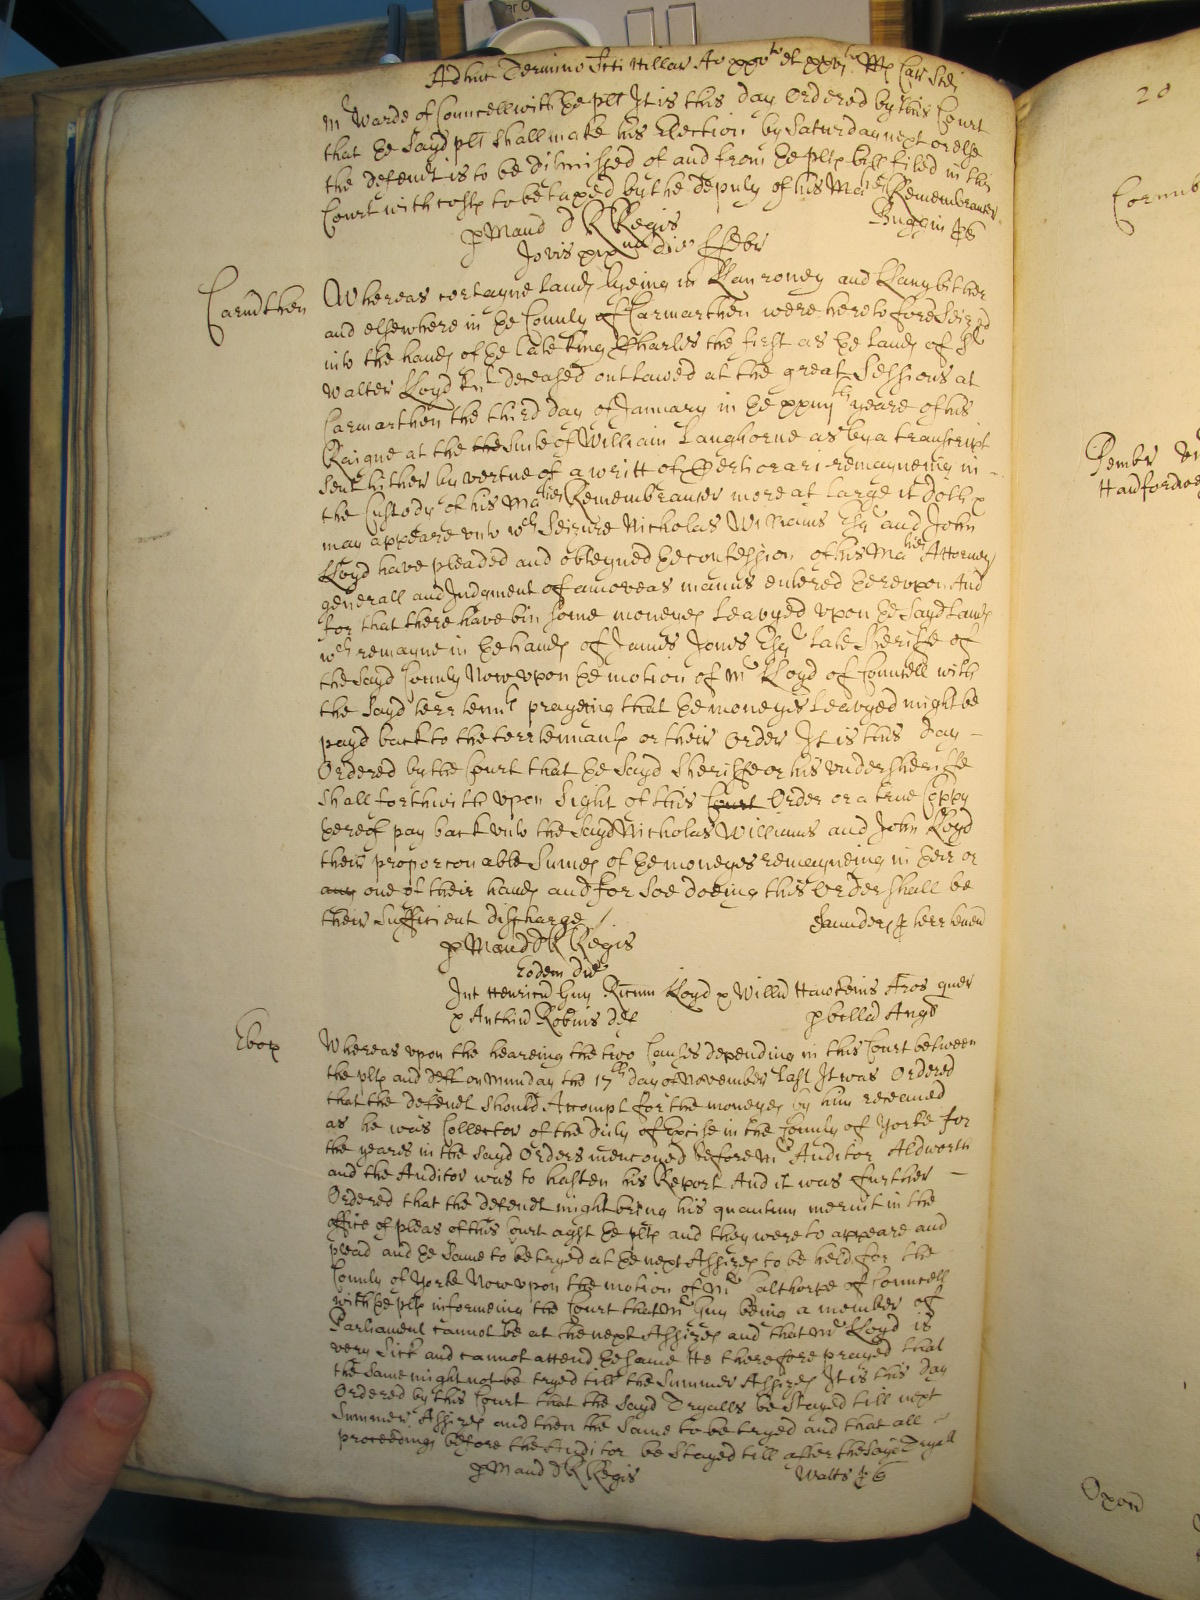 Adhuc Termino Scti Hillar Ao xxvto et xxvjto Rs Car Scdi
Mr Warde of Councell with ye plt It is this day Ordered by this Court
that ye Sayd plt shall make his Election by Saturday next or else
the defendt is to be dismissed of and from ye plts bill filed in this
Court with costs to be taxed by the deputy of his Maties Remembrancer
p Mand d R Regis
Buggin 6
Jovis die Febr
Carmthen
Whereas certayne lands lyeing in Llanroney and Llangbither
and elsewhere in ye County of Carmarthen were heretofore Seized
into the hands of ye late King Charles the first as ye lands of Sr
Walter Lloyd knt deceased outlawed at the great Sessions at
Carmarthen the third day of January in ye yeare of his
Raigne at the the Suite of William Langhorne as by a transcript
sent hither by vertue of a writt of Certiorari remayneing in
the Custody of his Maties Remembrancer more at large it doth
may appeare unto wch Seizure Nicholas Williams Esqr and John
Lloyd have pleaded and obteyned ye confession of his Maties Attorney
generall and Judgment of amoveas manus entered thereupon And
for that there have bin some moneyes leavyed upon ye Sayd lands
wch remayne in ye hands of James Jones Esqr late Sheriffe of
the Sayd County Now upon ye motion of Mr Lloyd of Councell with
the Sayd terrtents prayeing that ye moneyes leavyed might be
payd back to the terrtennants or their Order It is this day
Ordered by the Court that ye Sayd Sheriffe or his undersheriffe
shall forthwith upon Sight of this Court Order or a true Coppy
thereof pay back unto the Sayd Nicholas Williams and John Lloyd
their proporconable Sumes of ye moneyes remayneing in their or
any one of their hands and for Soe doeing this Order shall be
their sufficient discharge
Saunders p terr tenen
p Mand d R Regis
Eodem die
Int Henricu Guy Ricum Lloyd & Willm Hawkins Aros quer
& Anthiu Robins def
p billa Angl
Ebor
Whereas upon the heareing the two Causes depending in this Court between
the plts and deft on Munday the 17th day of November last It was Ordered
that the defendt should Accompt for the moneyes by him received
as he was Collector of the duty of Excise in the County of Yorke for
the yeares in the Sayd Orders menconed before Mr Auditor Aldworth
and the Auditor was to hasten his Report And it was further
Ordered that the defendt might bring his quantum meruit in the
office of pleas of this Court agst ye plts and they were to appeare and
plead and ye Same to be tryed at ye next Assizes to be held for the
County of Yorke Now upon the motion of Mr Calthorpe of Councell
with ye plts informeing the Court that Mr Guy being a member of
Parliament cannot be at the next Assizes and that Mr Lloyd is
very Sick and cannot attend ye same He therefore prayed that
the Same might not be tryed till the Summer Assizes It is this day
Ordered by this Court that the Sayd Tryalls be Stayed till next
Summer Assizes and then the Same to be tryed and that all
proceedings before the Auditor be Stayed till after the Sayd Tryall
p Mand d R Regis
Watts 6
20
Cornub
Pember
Haverfordwe
Oxon